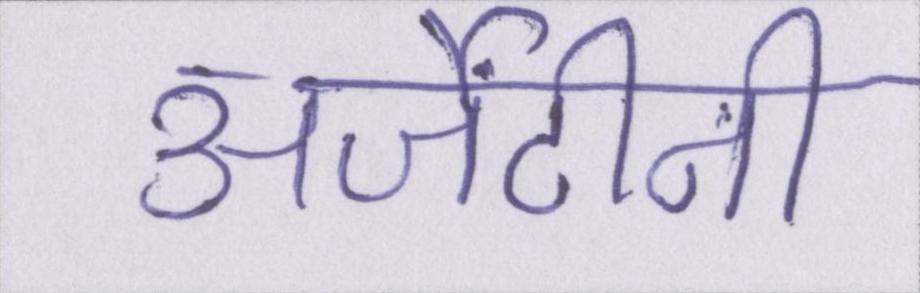 अर्जेंटीनी